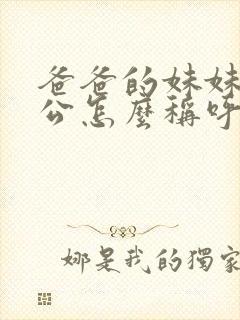 爸爸的妹妹
公怎麼稱呼
娜是我的獨家